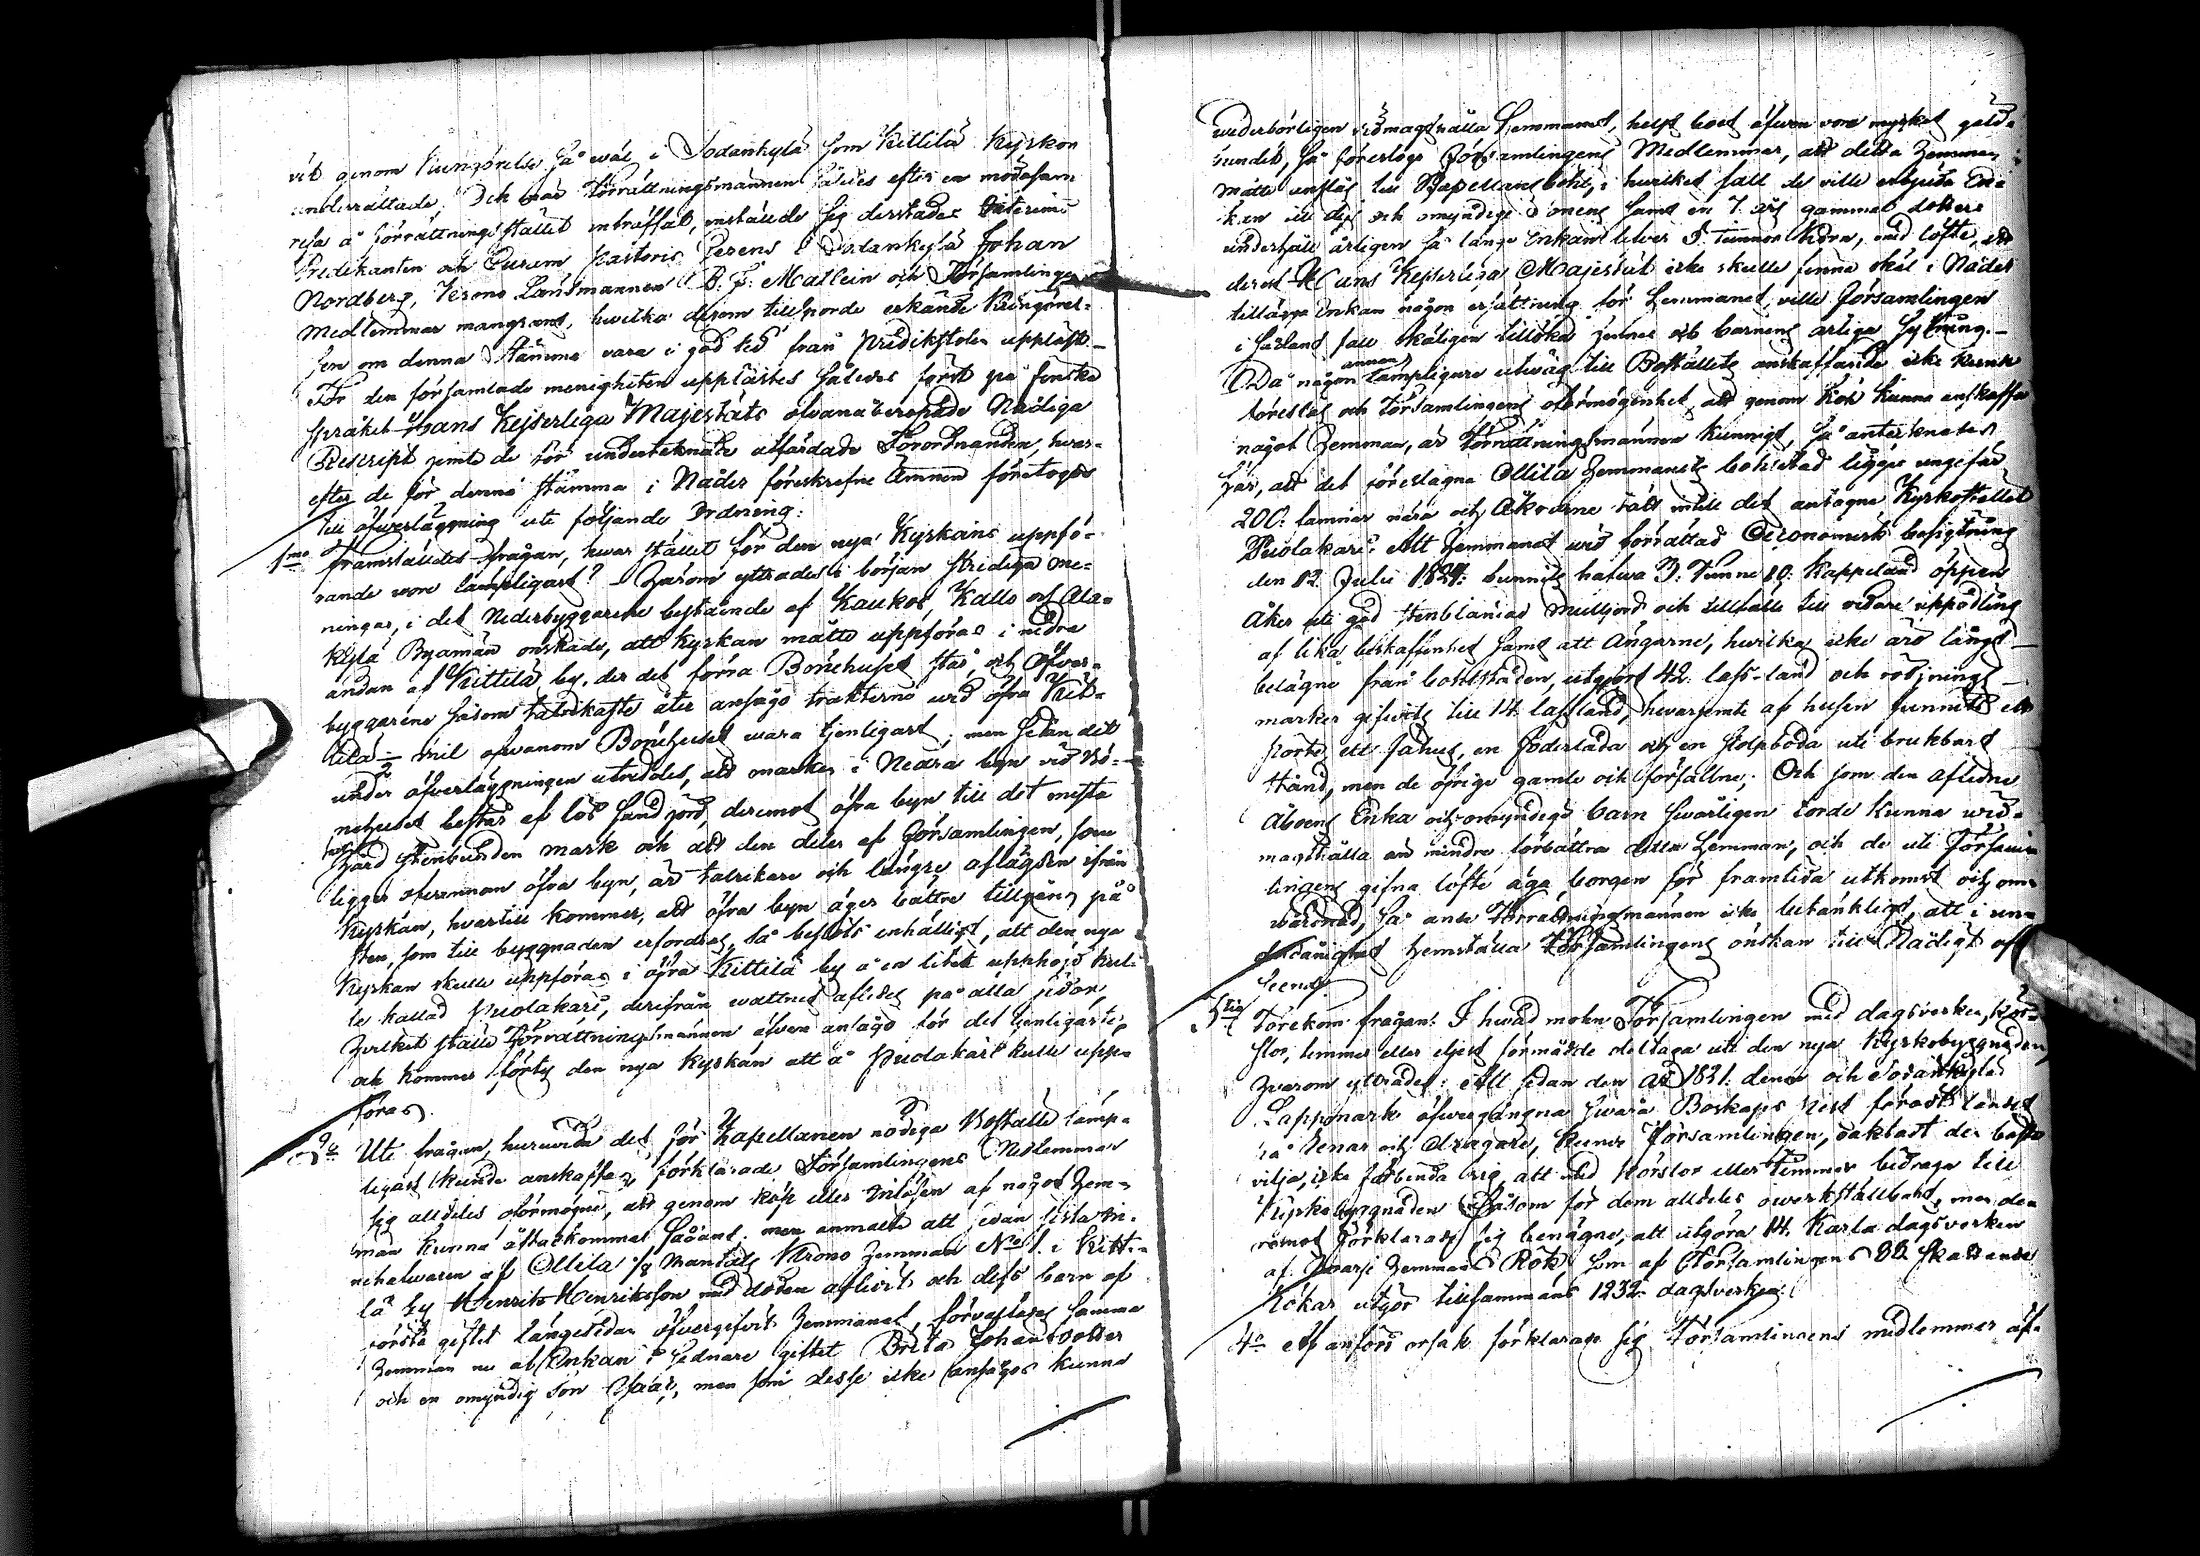 vit genom Kungörelse så wäl i Sodankylä som Kittilä Kyrkor
underrättade. Och när Förrättningsmannen således efter en mödosam
resa å Förrättningsstället inträffat, instälde sig derstädes Interims
Predikanten och Curam Pastoris Gerens i Sodankylä Johan
Nordberg, Krono Länsmannen B. F. Mallein och Församlingens
Medlemmar mangrant, hwilka derom tillsporde erkände Kungörel-
sen om denna Stämma vara i god tid från Predikstolen uppläst.
För den församlade menigheten upplästes således först på finska
språket Hans Kejserliga Majestäts ofvanåberopade Nådiga
Rescript jemte de för undertecknade utfärdade Förordnanden, hvar-
efter de för denna stämma i Nåder föreskrefne Ämnen företogos
till öfverläggning uti följande Ordning:
1mo Framställdes frågan, hvar stället för den nya Kyrkans uppfö-
rande vore lämpligast? Härom yttrades i början stridiga me-
ningar, i det Nederbyggarene bestående af Kaukos, Kallo och Ala-
kylä Byamän önskade, att Kyrkan måtte uppföras i nedra
ändan af Kittilä by, der det förra Bönehuset står, och Öfver-
byggarene såsom talrikaste åter ansågo trakterne wid öfra Kit-
tilä ½ mil ofvanom Bönehuset wara tjenligast; men sedan det
under öfverläggningen utreddes, att marken i Nedra byn vid Bö-
nehuset består af lös Sandjord, deremot öfra byn till det mesta
hård stenbunden mark och att den delen af Församlingen, som
ligger ofvannom öfra byn, är talrikare och längre aflägsen ifrån
Kyrkan, hvartill kommer, att öfra byn äger bättre tillgång på
sten, som till byggnaden erfordras, så beslöts enhälligt, att den nya
Kyrkan skulle uppföras i öfra Kittilä by å en litet upphöjd kul-
le kallad Puolakari, derifrån wattnet aflider på alla sidor,
hvilket ställe Förrättningsmannen äfven ansågo för det tjenligaste,
och kommer förty den nya Kyrkan att å Puolakari kulle upp-
föras.
2o Uti frågan, huruvida det för Kapellanen nödiga Boställe lämp-
ligast kunde anskaffas, förklarade Församlingens Medlemmar
sig alldeles oförmögne, att genom köp eller inlösen af något Hem-
man kunna åstadkomma sådant; men anmälte att sedan sista in-
nehafvaren af Ollila ⅛ Mantals Krono Hemman No 1. i Kitti-
lä by Henrik Henriksson med döden aflidit och dess barn af
första giftet längesedan öfvergifvit Hemmanet, förvaltades samma
Hemman nu af Enkan i sednare giftet Brita Johansdotter
och en omyndig son Isaac, men som desse icke ansågos kunna
wederbörligen widmagthålla Hemmanet, helst boet äfwen vore mycket gäld-
bundet, så föreslogo Församlingens Medlemmar, att detta Hemman
måtte anslås till Kapellansbohl, i hwilket fall de ville erbjuda En-
kan till dess och omyndige sonens samt en 7. års gammal dotters
underhåll årligen så länge Enkan lefver 3. Tunnor Korn, med löfte, att
derest Hans Kejserliga Majestät icke skulle finna skäl i Nåder
tillägga Enkan någon ersättning för Hemmanet, ville Församlingen
i sådant fall skäligen tillöka hennes och barnens årliga Sytning.
Då någon annan lämpligare utwäg till Boställets anskaffande icke kunde
föreslås och Församlingens oförmögenhet, att genom köp kunna anskaffa
något Hemman, är Förrättningsmannen kunnigt, så antecknades
här, att det föreslagna Ollila Hemmanets bohlstad ligger ungefär
200. famnar nära och Åkrarne tätt intill det antagna Kyrkostället
Puolakari. Att Hemmanet wid förrättad Oeconomisk besigtning
den 12. Julii 1824. funnits hafwa 3. Tunne 10. Kappeland öppen
Åker uti god stenblandad mulljord och tillfälle till widare uppodling
af lika beskaffenhet samt att Ängarne, hwilka icke äro långt
belägne från bohlstaden, utgjort 42. lass-land och röjnings
marker gifwits till 14. lassland, hwarjemte af husen funnits en
Pörte, ett Fähus, en Foderlada och en Stolpboda uti brukbart
stånd, men de öfrige gamle och förfallne; Och som den aflidne
Åboens Enka och omyndige barn swårligen torde kunna wid-
magthålla än mindre förbättra detta Hemman, och de uti Försam-
lingens gifna löfte äga borgen för framtida utkomst och om-
wårdnad, så anse Förrättningsmannen icke betänkligt, att i un-
derdånighet hemställa Församlingens önskan till Nådigt af-
seende.
3tio Förekom frågan: I hwad mohn Församlingen med dagsverken, Kör-
slor, timmer eller eljest förmådde deltaga uti den nya Kyrkobyggnaden,
hvarom yttrades: Att sedan den år 1831. denna och Sodankylä
Lappmark öfvergångna swåra Boskaps Pest förött landet
på Renar och Dragare, kunde Församlingen, oaktadt den bästa
vilja, icke förbinda sig att med Körslor eller Timmer bidraga till
Kyrkobyggnaden såsom för dem alldeles owerkställbart, men der-
emot förklarade sig benägne, att utgöra 14. Karla dagsverken
af hvarje Hemmans Rök, som af Församlingens 88. Skattande
Rökar utgör tillsammans 1232. dagsverken.
4o Af anförd orsak förklarade sig Församlingens medlemmar äf-